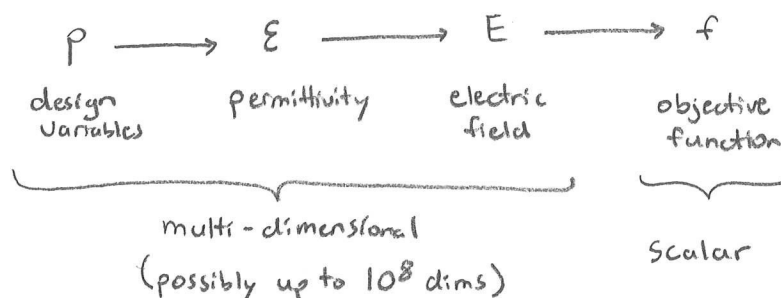 p → ε → E → f
design variables
permittivity
electric field
objective function
multi-dimensional
(possibly up to 10⁸ dims)
scalar